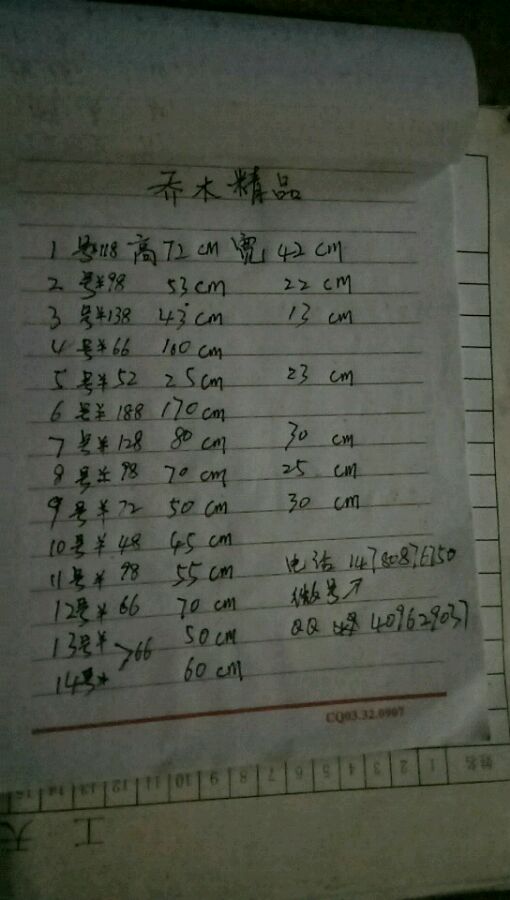 乔木精品
1号¥118 高72cm 宽42cm
2号¥98 53cm 22cm
3号¥138 43cm 13cm
4号¥66 160cm
5号¥52 25cm 23cm
6号¥188 170cm
7号¥128 80cm 30cm
8号¥98 70cm 25cm
9号¥72 50cm 30cm
10号¥48 45cm
11号¥98 55cm
电话 14780876150
12号¥66 70cm
微号↗
13号¥ >66 50cm
QQ 409629037
14号¥ 60cm
CQ03.32.0907
姓名 1 2 3 4 5 6 7 8 9 10 11 12 13 14 15
工